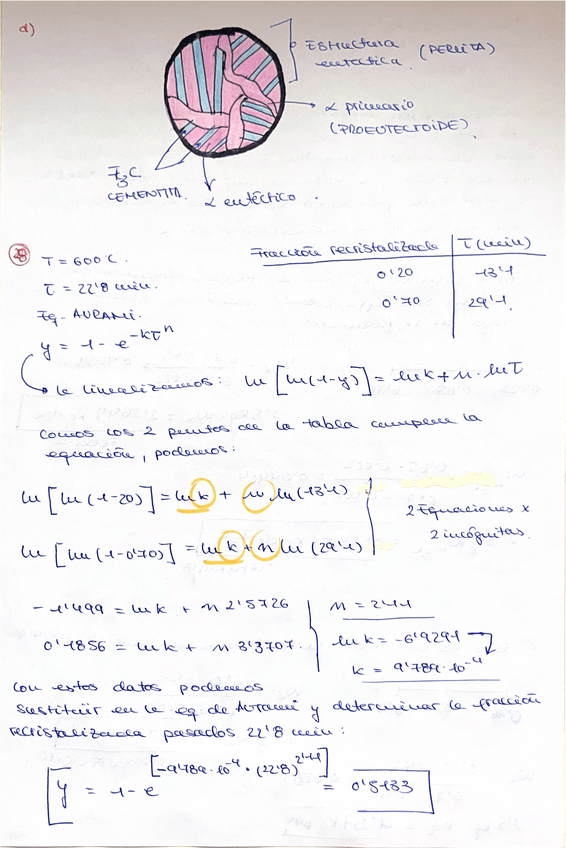 d)
Estructura
eutectica. (PERLITA)
α primario
(PROEUTECTOIDE).
Fe3C
CEMENTITA.
α eutéctico.
28
T = 600ºC.
τ = 22'8 min.
Eq. AVRAMI.
y = 1 - e^-kτ^n
Fracción recristalizada | τ (min)
0'20 | 13'1
0'70 | 29'1
la linealizamos: ln [ln(1-y)] = ln k + n · ln τ
Como los 2 puntos de la tabla cumplen la
equación, podemos:
ln [ln(1-20)] = ln k + n ln(13'1)
ln [ln(1-0'70)] = ln k + n ln (29'1)
2 Equaciones x
2 incógnitas.
-1'499 = ln k + n 2'5726
0'1856 = ln k + n 3'3707.
n = 2'11
ln k = -6'9291
k = 9'789·10^-4
Con estos datos podemos
sustituir en la eq de Avrami y determinar la fracción
recristalizada pasados 22'8 min:
y = 1 - e^[-9'789·10^-4 · (22'8)^2'11] = 0'5133